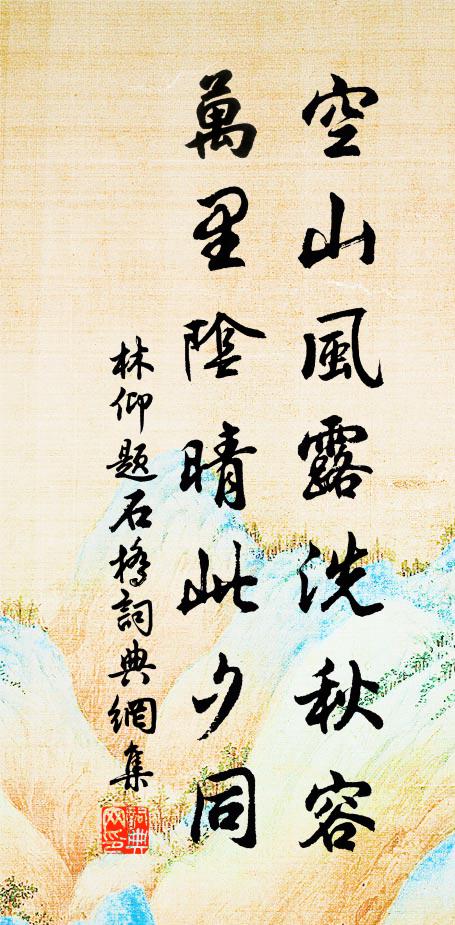 空山風露洗秋容
萬里陰晴此夕同
林仰題石橋詞典網集
詞典
网印